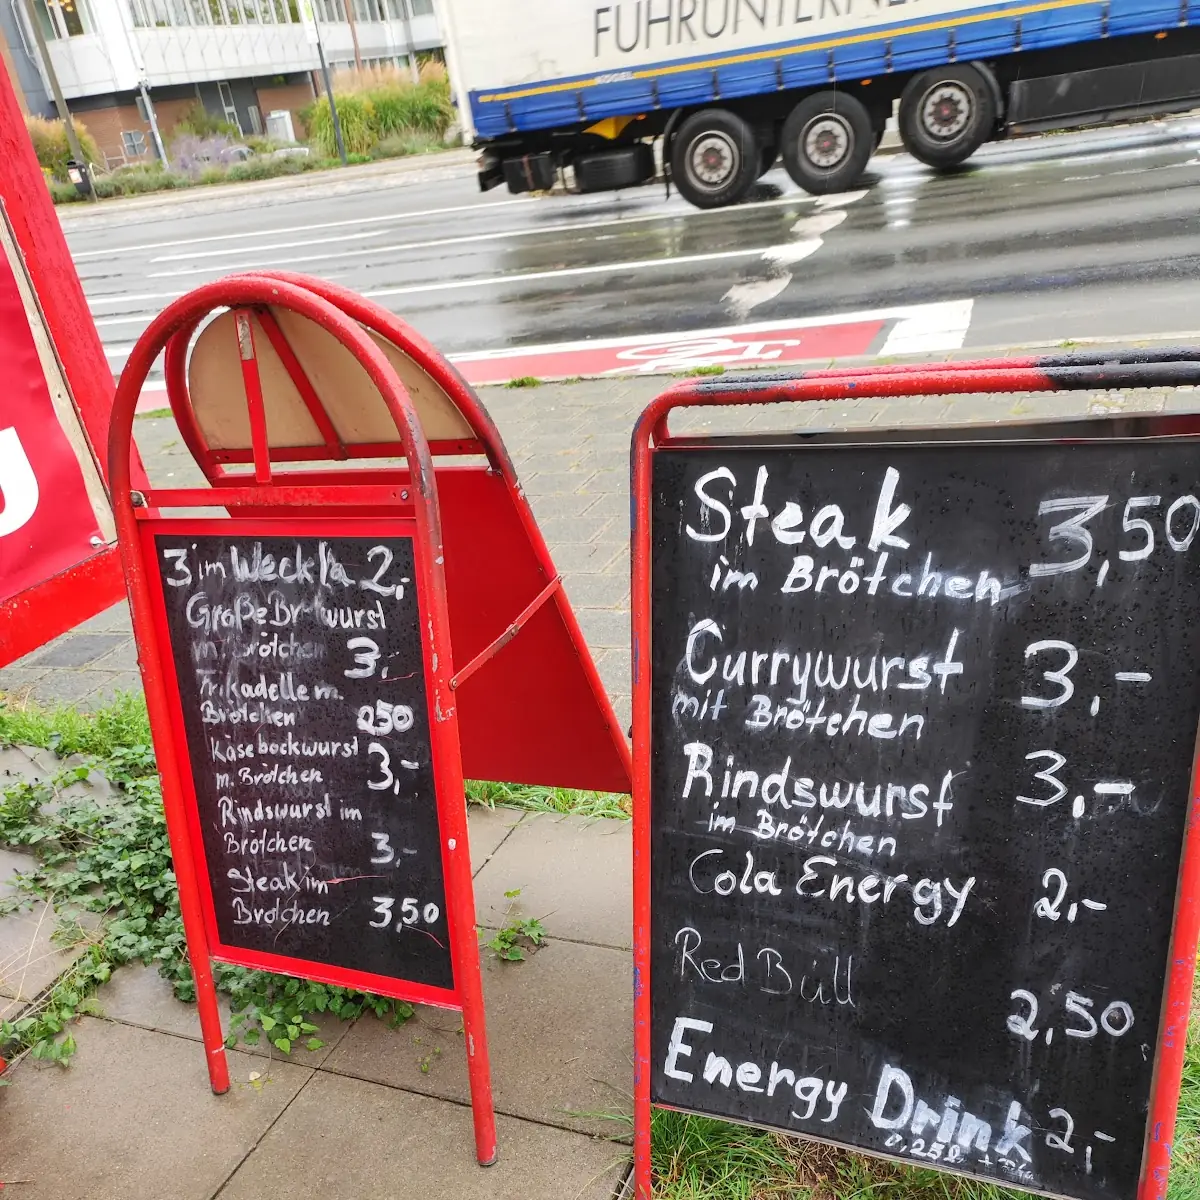 FUHRUNTERNE
3 im Weckla 2,-
Große Bratwurst
m. Brötchen 3,-
Frikadelle m.
Brötchen 250
Käsebockwurst
m. Brötchen 3,-
Rindswurst im
Brötchen 3,-
Steak im
Brötchen 3,50
Steak 3,50
im Brötchen
Currywurst 3,-
mit Brötchen
Rindswurst 3,-
im Brötchen
Cola Energy 2,-
Red Bull
2,50
Energy Drink 2,-
0,25l